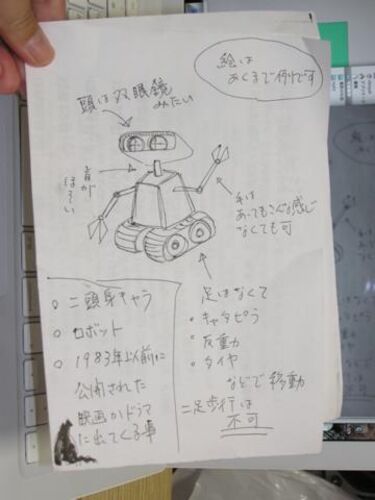 絵は
あくまで例です
頭は双眼鏡
みたい
首が
ほそい
手は
あってもこんな感じ
なくても可
○ 二頭身キャラ
○ ロボット
○ 1983年以前に
公開された
映画かドラマ
に出てくる事
足はなくて
・キャタピラ
・反重力
・タイヤ
などで移動
二足歩行は
不可